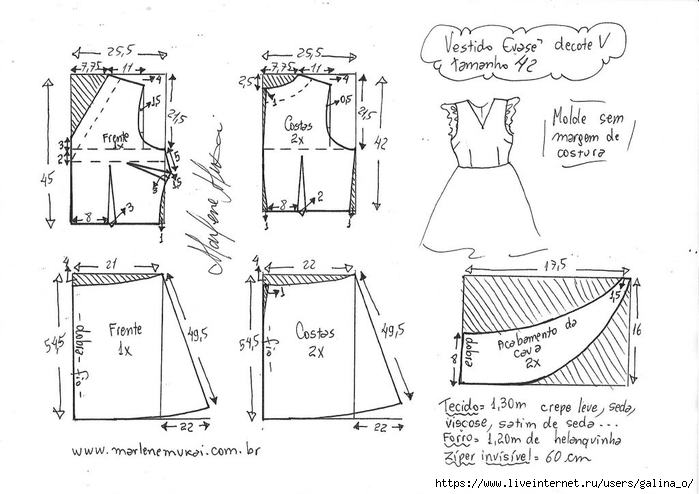 Vestido Evasê decote V
tamanho 42
25,5
7,75
11
4
1,5
21,5
Frente
1x
3
2
45
5
5
1,5
8
3
1
25,5
7,75
11
4
2,5
1
0,5
21,5
Costas
2x
42
8
2
1
1
Molde sem
margem de
costura
Marlene Mukai
21
4
54,5
dobra - fio -
Frente
1x
49,5
22
22
4
1
54,5
- fio -
Costas
2x
49,5
22
17,5
1,5
16
8
dobra
Acabamento da
cava
2x
Tecido = 1,30m crepe leve, seda,
viscose, satim de seda...
Forro = 1,20m de helanquinha
Zíper invisível = 60 cm
www.marlenemukai.com.br
https://www.liveinternet.ru/users/galina_o/